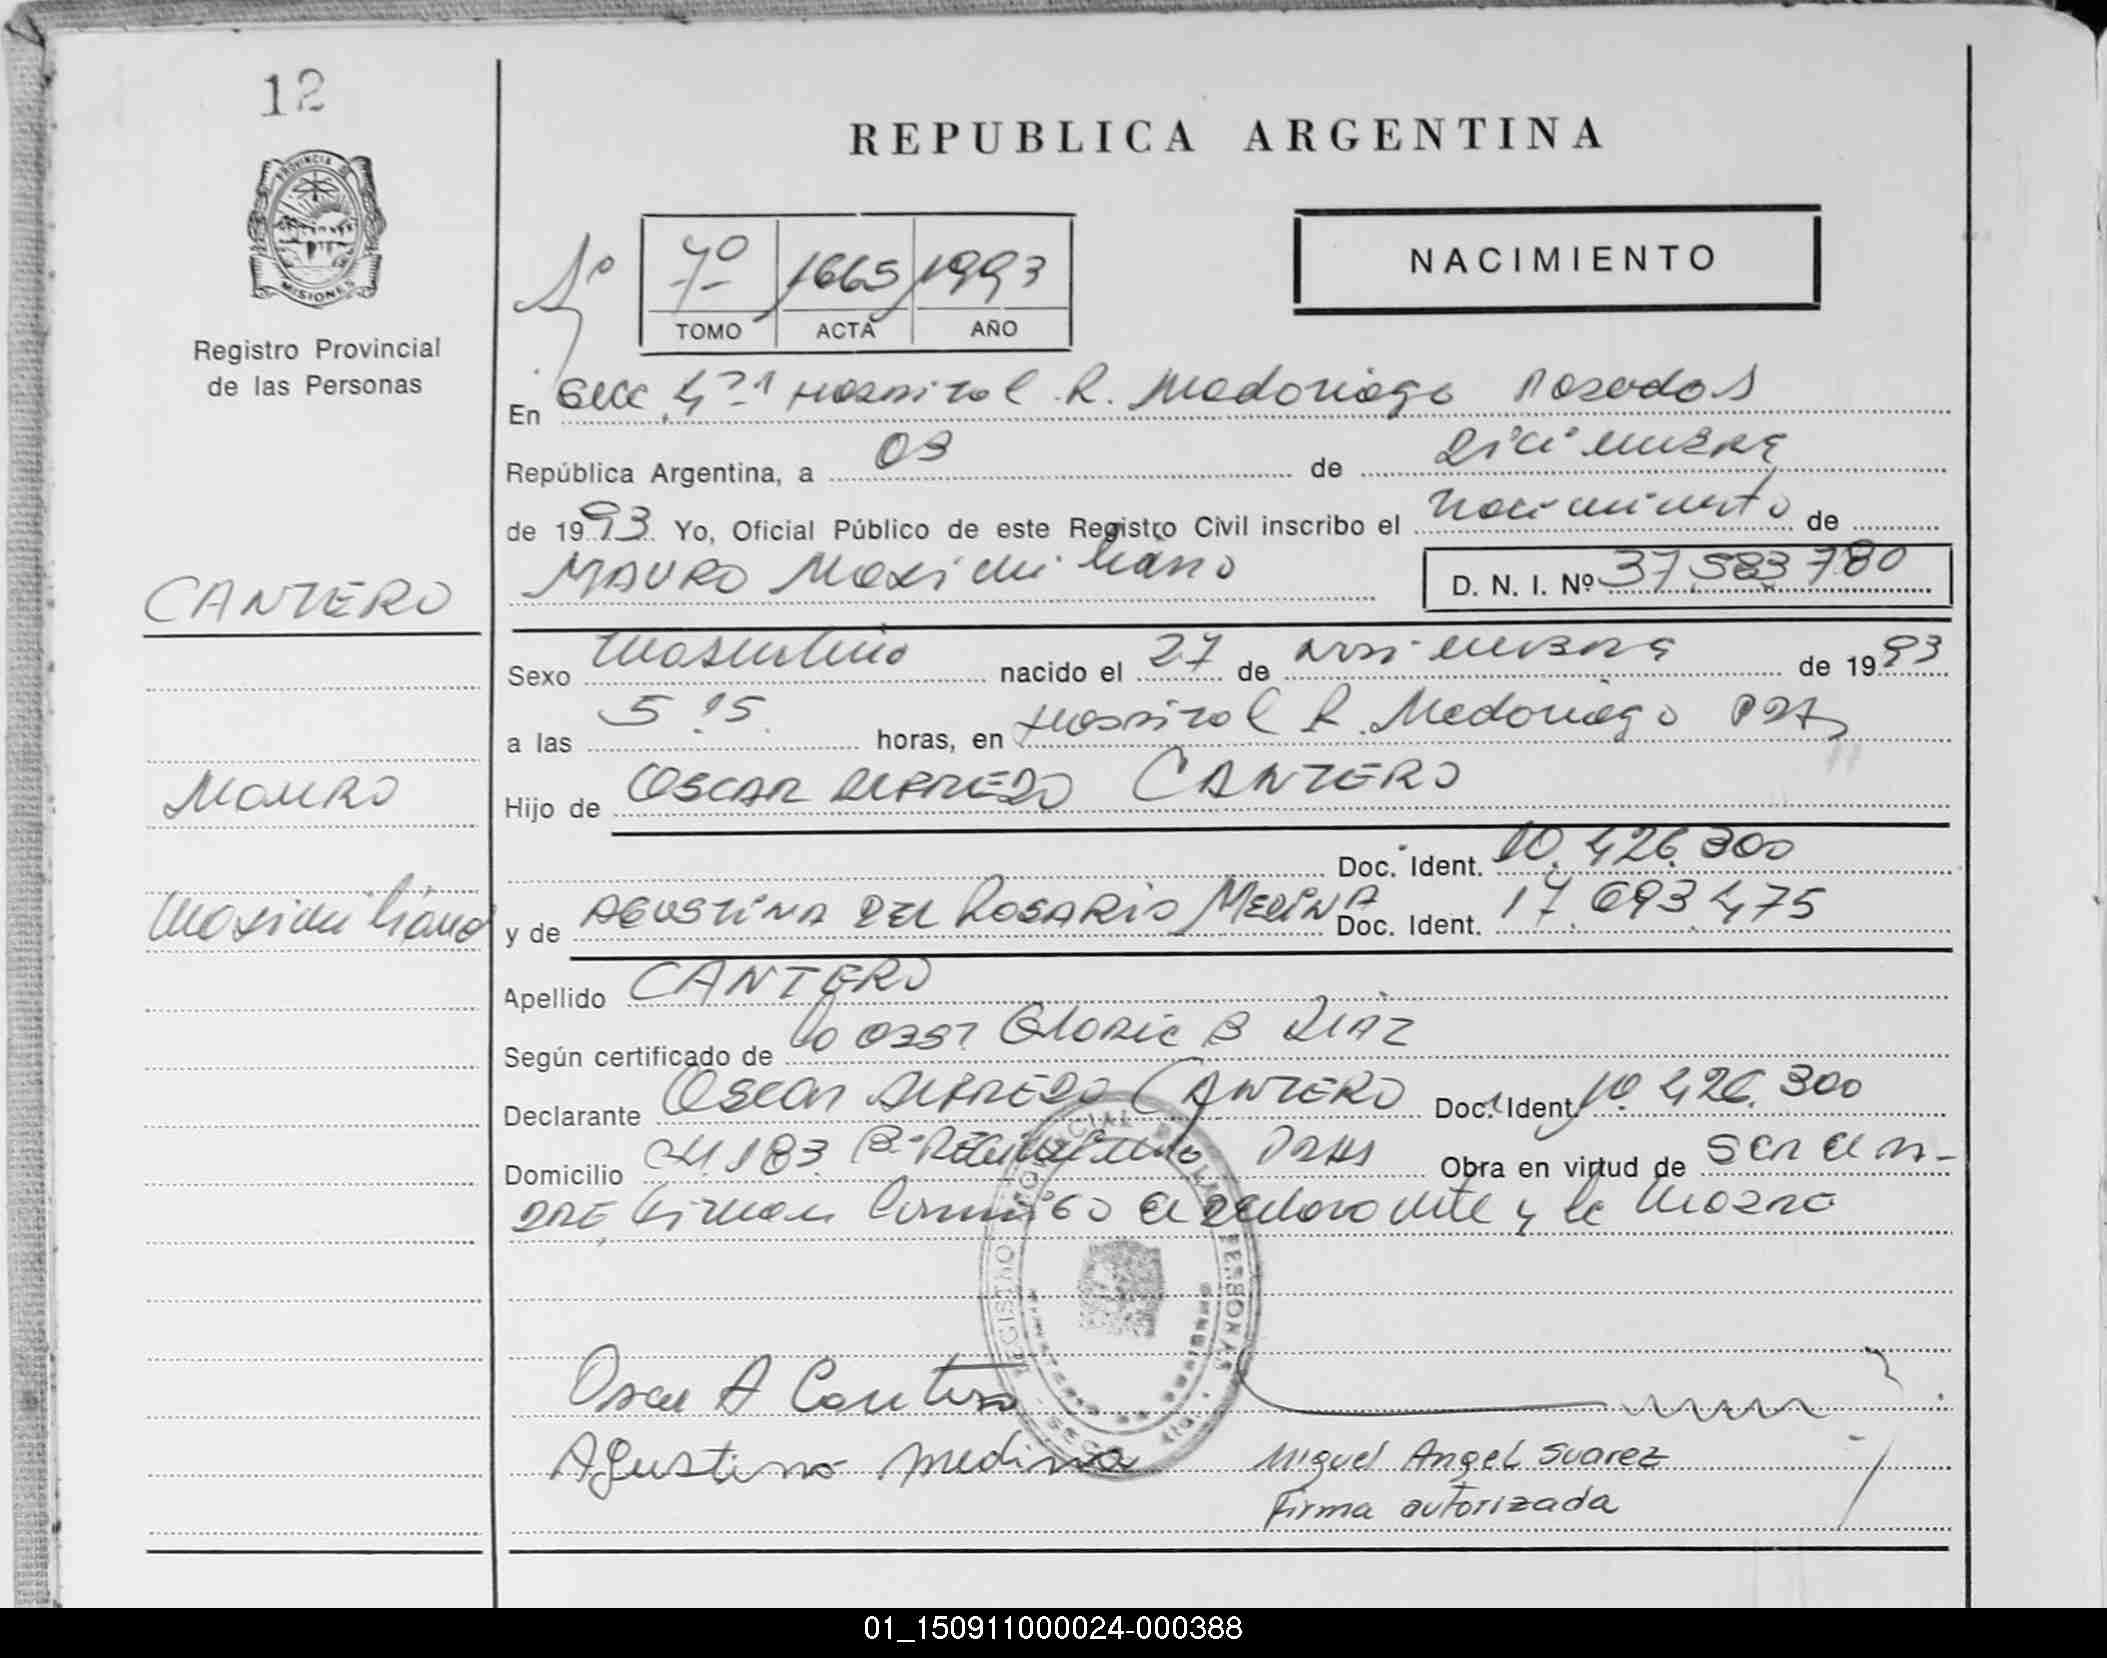 12
REPUBLICA ARGENTINA
PROVINCIA DE
MISIONES
Registro Provincial
de las Personas
NACIMIENTO
7º 1665 1993
TOMO ACTA AÑO
En Secc 4ª Hospital R. Madariaga Posadas
República Argentina, a 03 de Diciembre
de 1993 Yo, Oficial Público de este Registro Civil inscribo el nacimiento de
MAURO Maximiliano D. N. I. Nº 37.583.780
CANTERO
Sexo masculino nacido el 27 de noviembre de 1993
a las 5.15 horas, en Hospital R. Madariaga Pdas
Mauro
Hijo de OSCAR ALFREDO CANTERO
Doc. Ident. 10.426.300
Maximiliano
y de AGUSTINA DEL ROSARIO MEDINA Doc. Ident. 17.693.475
Apellido CANTERO
Según certificado de Gloria B DIAZ
Declarante OSCAR ALFREDO CANTERO Doc. Ident. 10.426.300
Domicilio CH. 183 Pdas Obra en virtud de ser el pa-
dre firman conmigo el declarante y la madre
REGISTRO PROVINCIAL DE LAS PERSONAS
Oscar A Cantero
Agustina medina
Miguel Angel Suarez
Firma autorizada
01_150911000024-000388